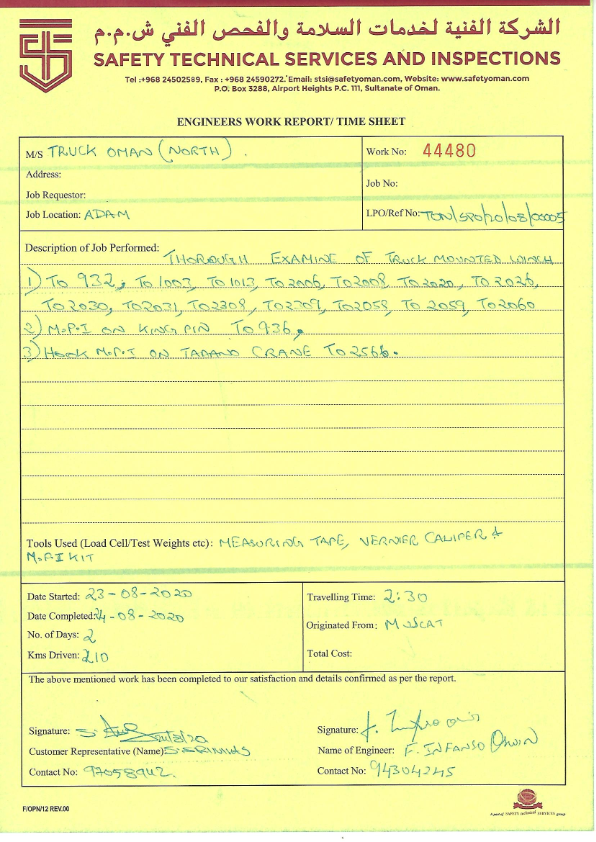 الشركة الفنية لخدمات السلامة والفحص الفني ش.م.م
SAFETY TECHNICAL SERVICES AND INSPECTIONS
Tel :+968 24502589, Fax : +968 24590272. Email: stsi@safetyoman.com, Website: www.safetyoman.com
P.O. Box 3288, Airport Heights P.C. 111, Sultanate of Oman.
ENGINEERS WORK REPORT/ TIME SHEET
M/S TRUCK OMAN (NORTH).
Work No: 44480
Address:
Job Requestor:
Job No:
Job Location: ADAM
LPO/Ref No: TON/SPO/20/08/00005
Description of Job Performed: THOROUGH EXAMINE OF TRUCK MOUNTED WINCH
1) TO 932, TO 1003, TO 1013, TO 2006, TO 2008, TO 2020, TO 2026,
TO 2030, TO 2031, TO 2308, TO 2309, TO 2058, TO 2059, TO 2060
2) M.P.I ON KING PIN TO 936.
3) HOOK M.P.I ON TADANO CRANE TO 2566.
Tools Used (Load Cell/Test Weights etc): MEASURING TAPE, VERNIER CALIPER &
M.P.I KIT
Date Started: 23-08-2020
Travelling Time: 2:30
Date Completed: 24-08-2020
Originated From: MUSCAT
No. of Days: 2
Kms Driven: 210
Total Cost:
The above mentioned work has been completed to our satisfaction and details confirmed as per the report.
Signature:
Signature:
Customer Representative (Name): S. SRINIVAS
Name of Engineer: F. INFANSO
Contact No: 97058942.
Contact No: 94304245
F/OPN/12 REV.00